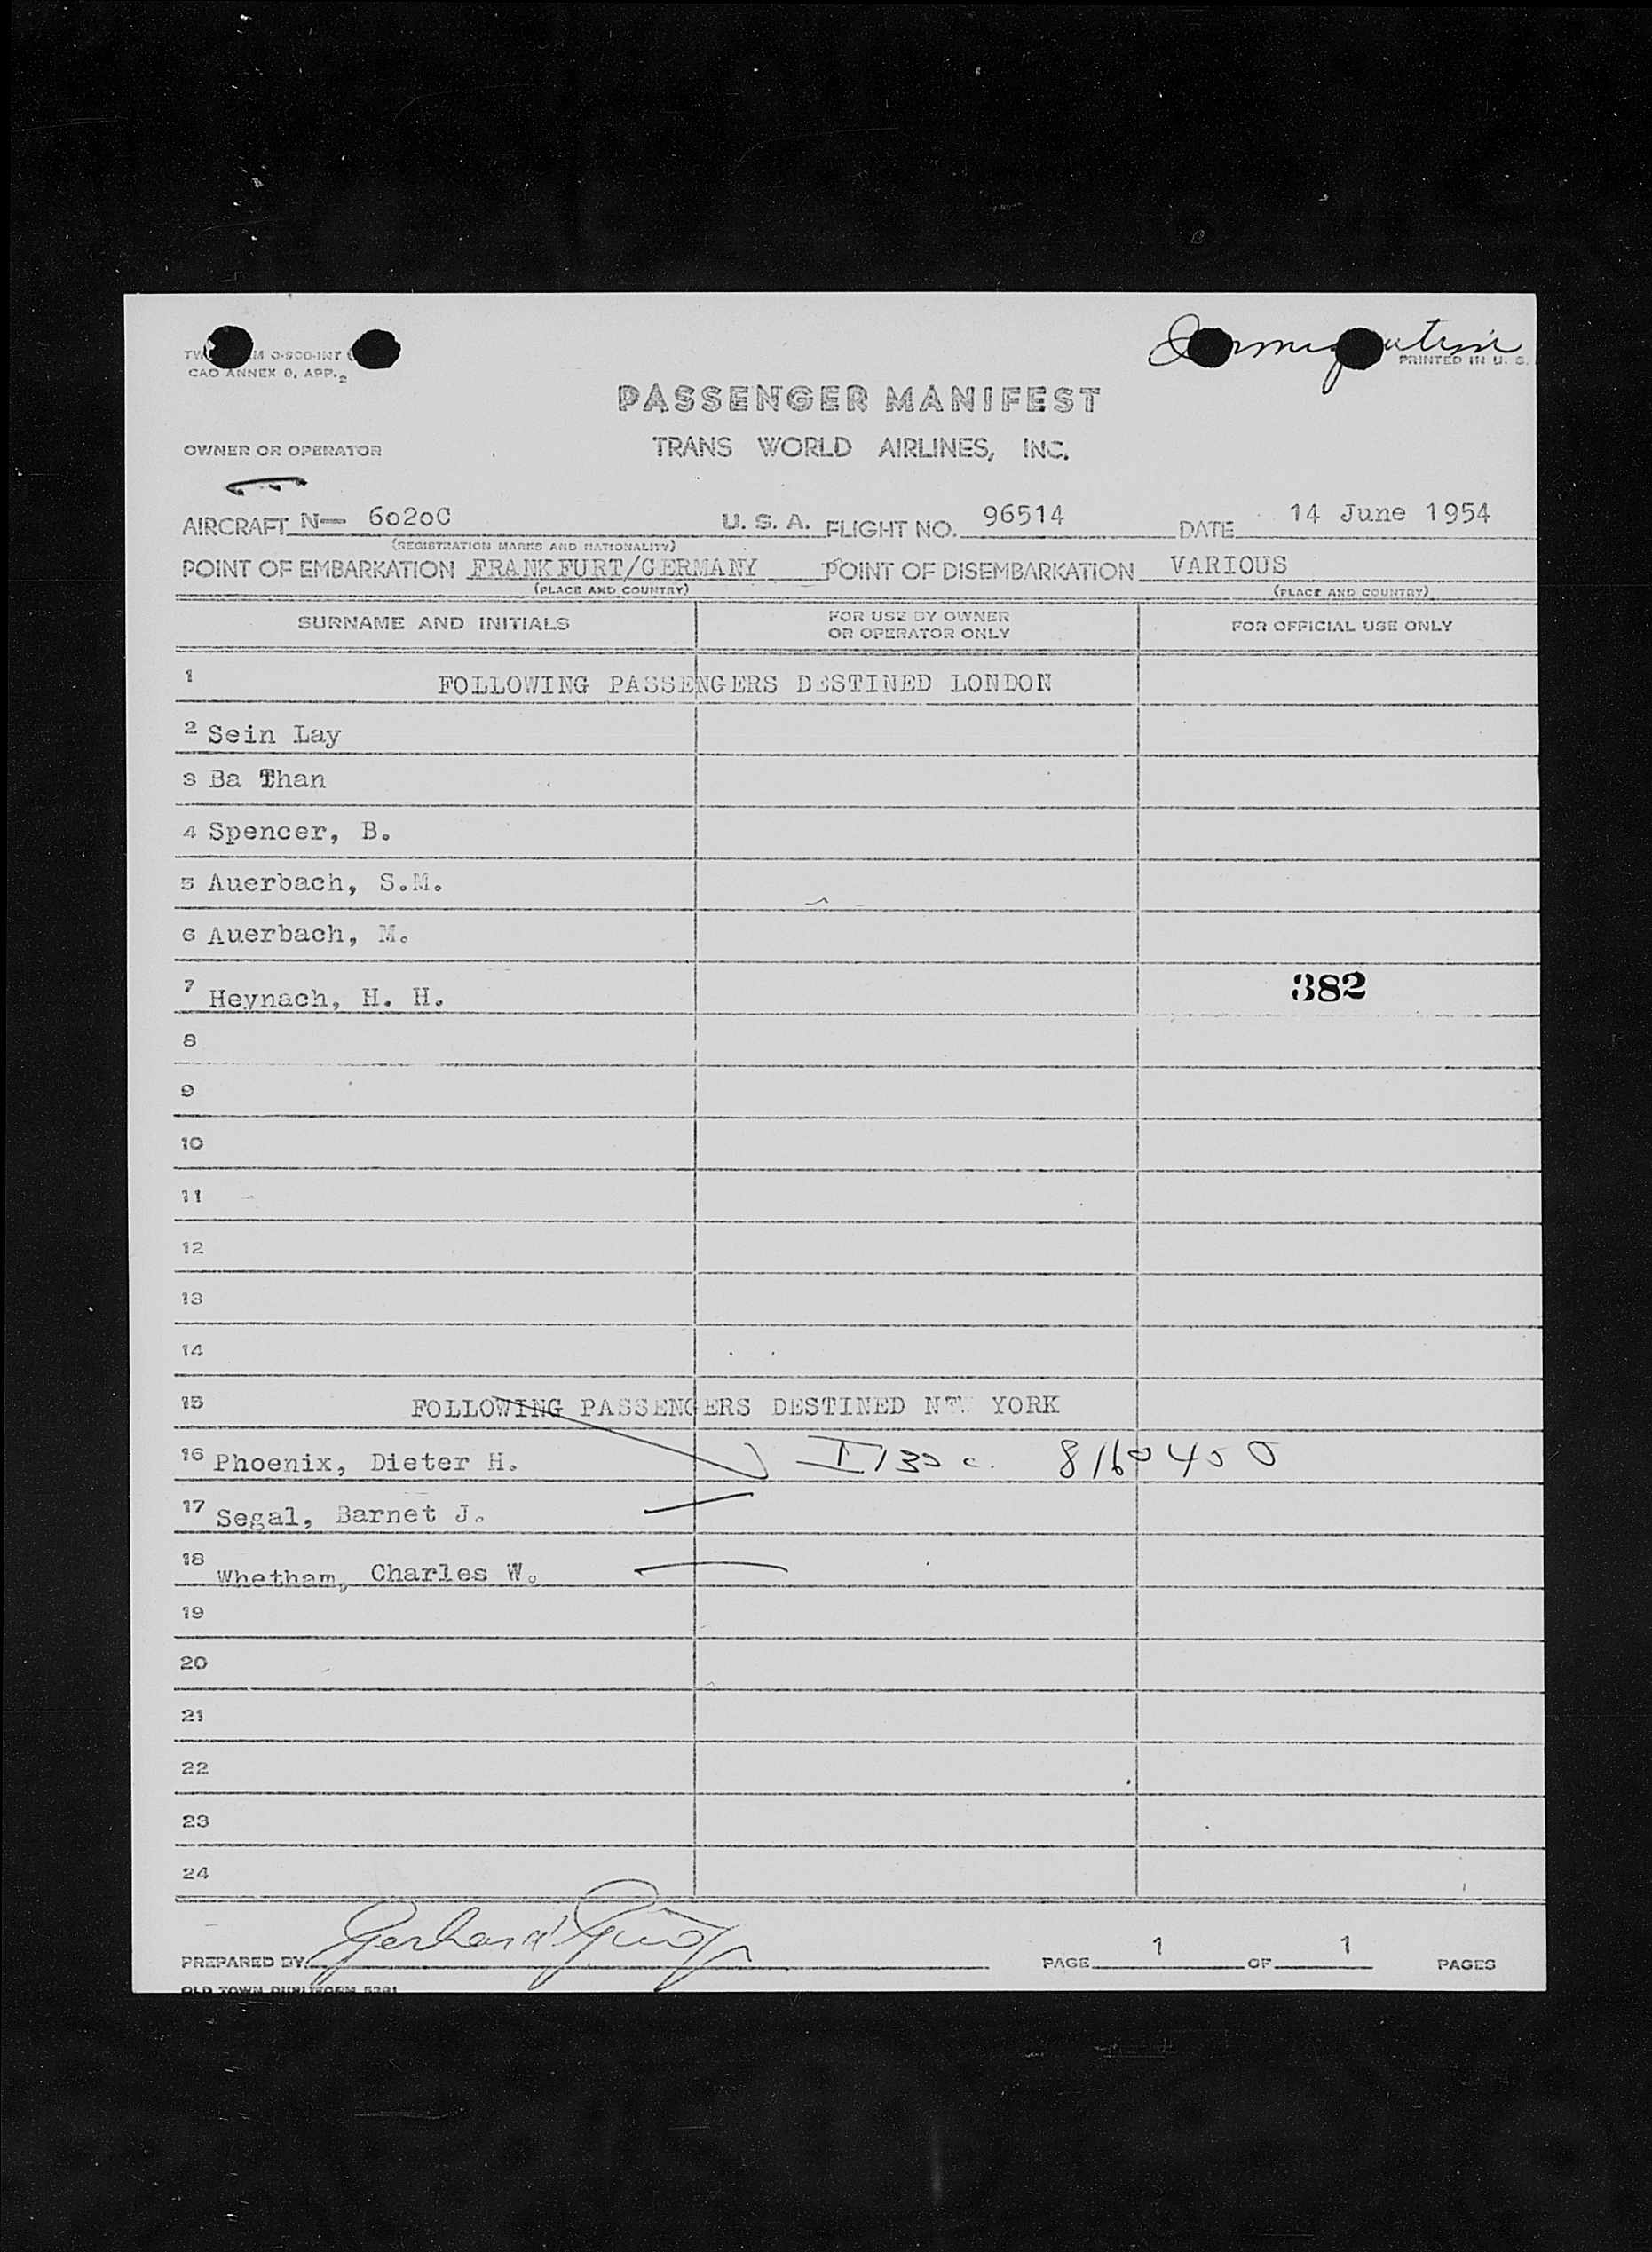 CAO ANNEX 9, APP. 2
Immigration
PRINTED IN U. S.
PASSENGER MANIFEST
OWNER OR OPERATOR
TRANS WORLD AIRLINES, INC.
AIRCRAFT N— 6020C U. S. A. FLIGHT NO. 96514 DATE 14 June 1954
(REGISTRATION MARKS AND NATIONALITY)
POINT OF EMBARKATION FRANKFURT/GERMANY POINT OF DISEMBARKATION VARIOUS
(PLACE AND COUNTRY) (PLACE AND COUNTRY)
SURNAME AND INITIALS FOR USE BY OWNER OR OPERATOR ONLY FOR OFFICIAL USE ONLY
1 FOLLOWING PASSENGERS DESTINED LONDON
2 Sein Lay
3 Ba Than
4 Spencer, B.
5 Auerbach, S.M.
6 Auerbach, M.
7 Heynach, H. H. 382
8
9
10
11
12
13
14
15 FOLLOWING PASSENGERS DESTINED NEW YORK
16 Phoenix, Dieter H. 8160450
17 Segal, Barnet J.
18 Whetham, Charles W.
19
20
21
22
23
24
PREPARED BY Gerhard PAGE 1 OF 1 PAGES
OLD TOWN